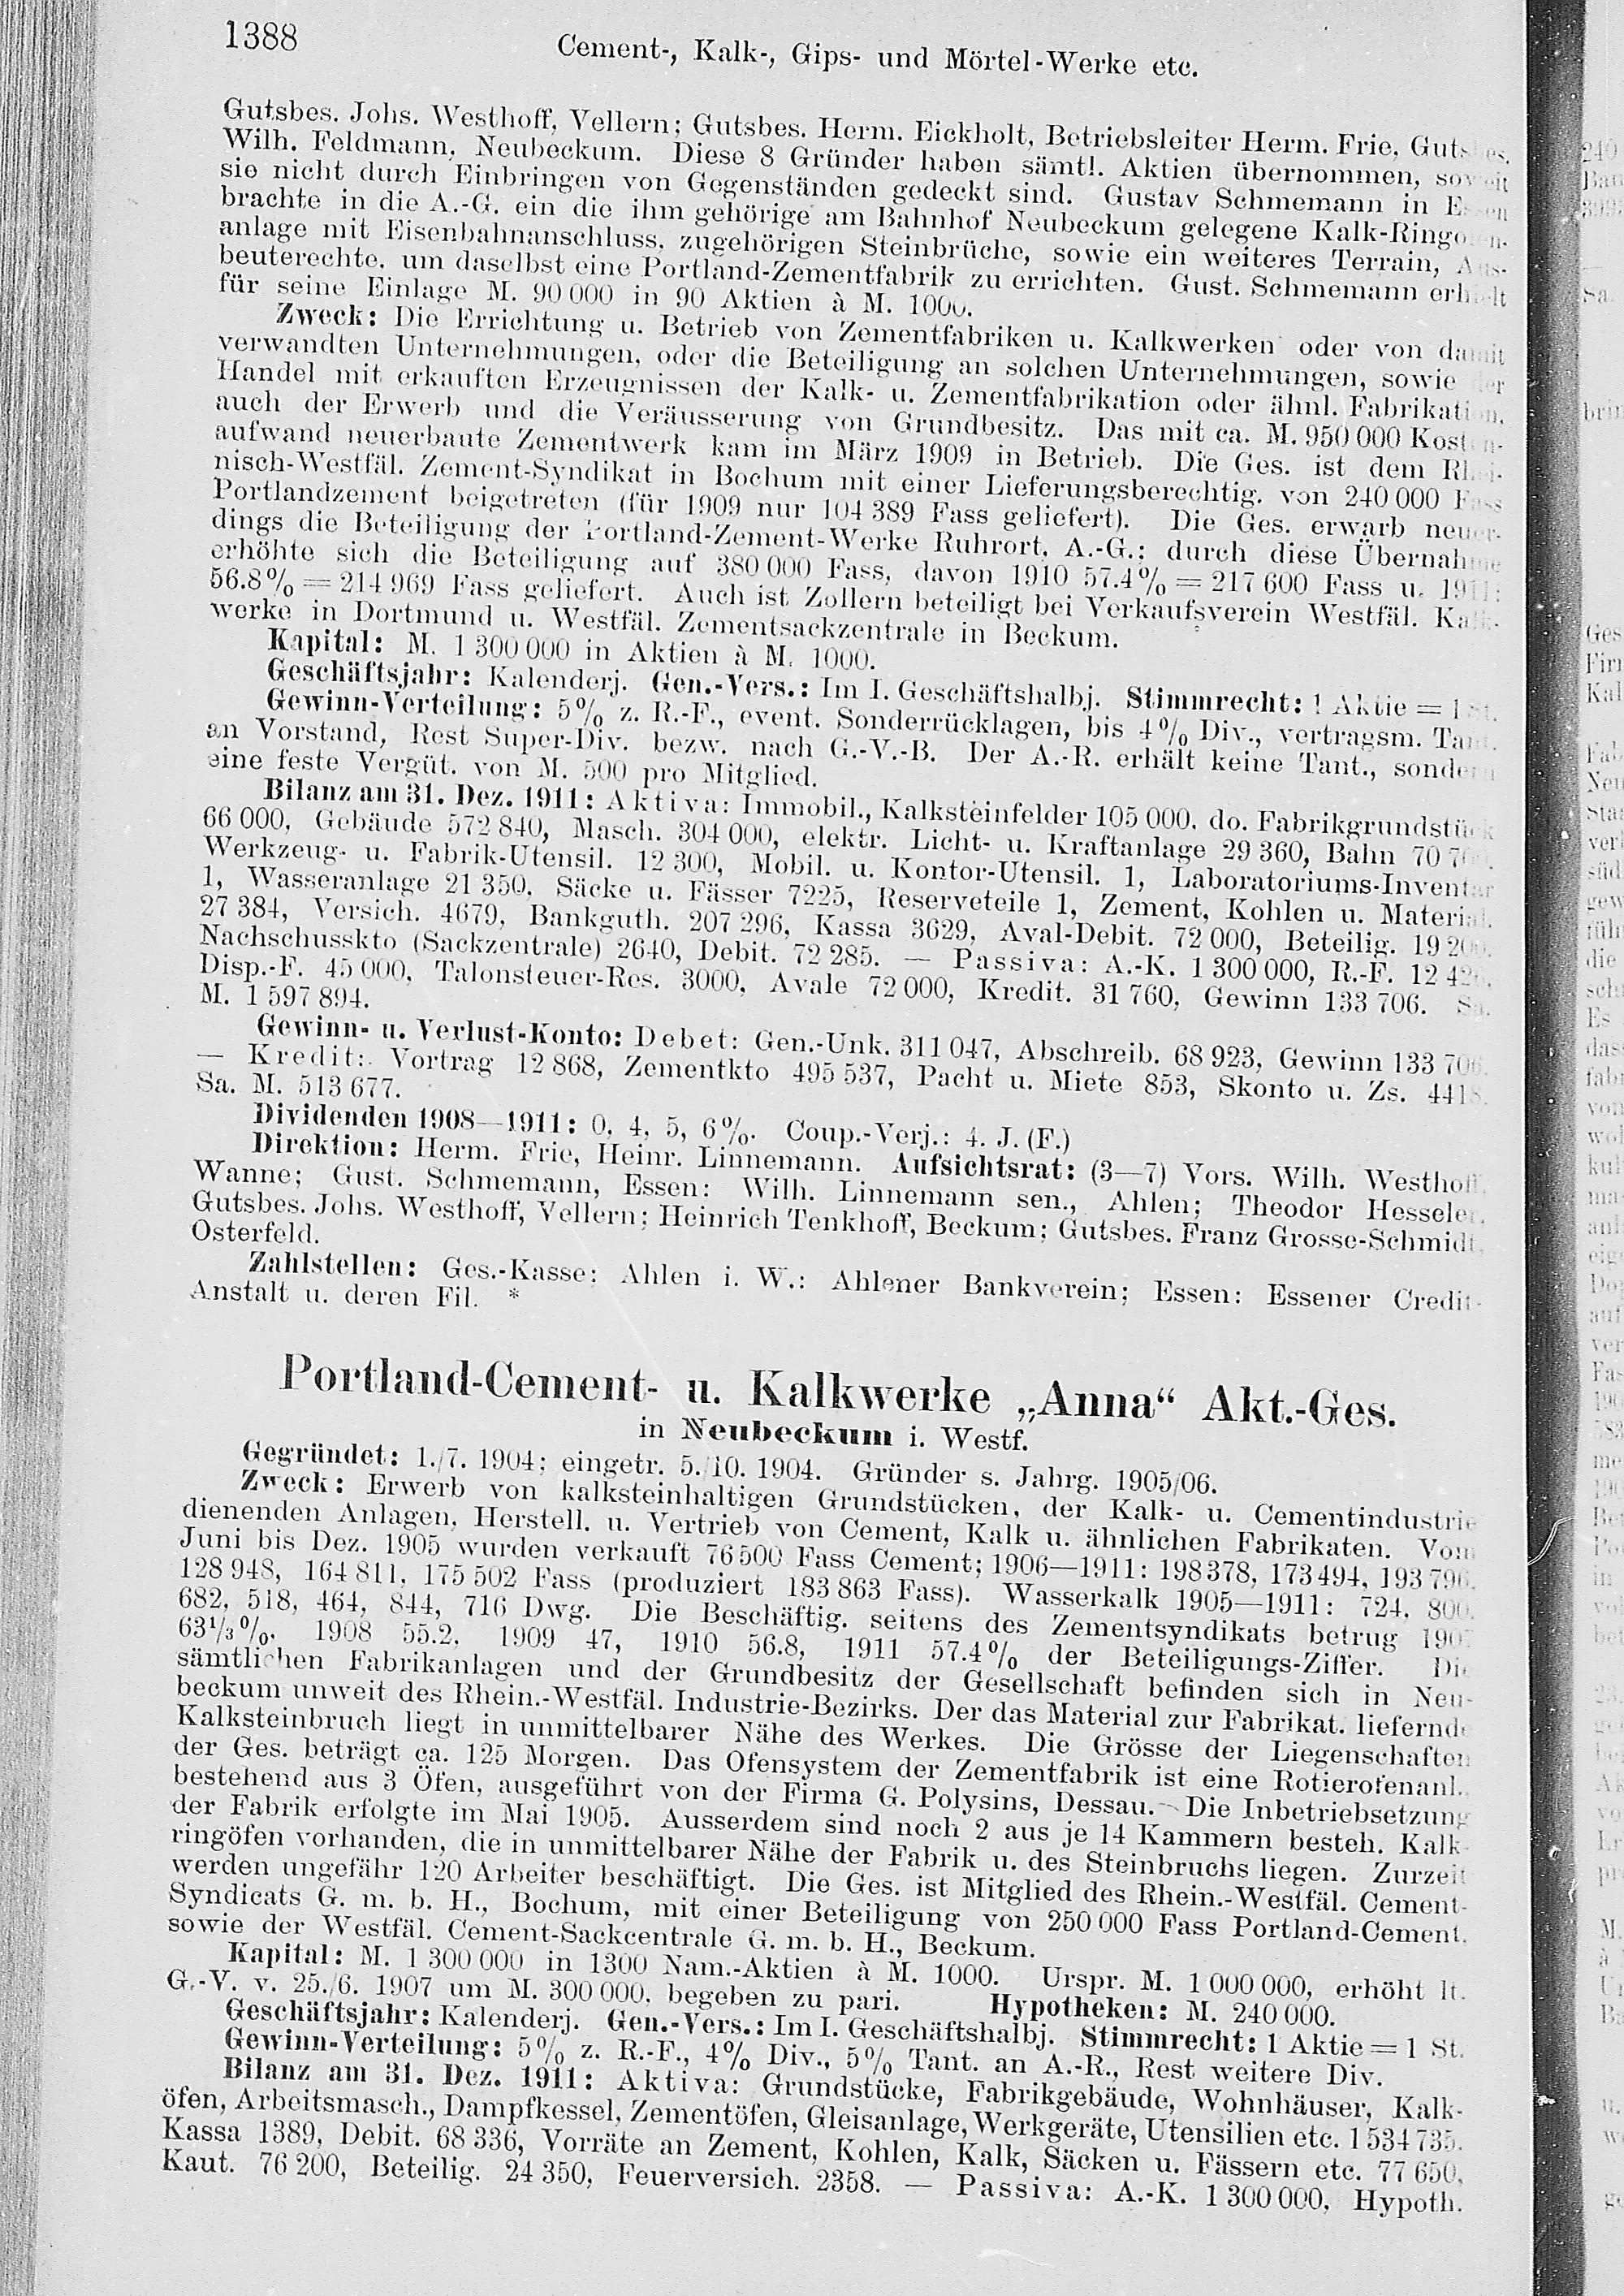 1388
Cement-, Kalk-, Gips- und Mörtel-Werke etc.
Gutsbes. Johs. Westhoff, Vellern; Gutsbes. Herm. Eickholt, Betriebsleiter Herm. Frie, Gutsbes.
Wilh. Feldmann, Neubeckum. Diese 8 Gründer haben sämtl. Aktien übernommen, soweit
sie nicht durch Einbringen von Gegenständen gedeckt sind. Gustav Schmemann in Essen
brachte in die A.-G. ein die ihm gehörige am Bahnhof Neubeckum gelegene Kalk-Ringofen-
anlage mit Eisenbahnanschluss, zugehörigen Steinbrüche, sowie ein weiteres Terrain, Aus-
beuterechte, um daselbst eine Portland-Zementfabrik zu errichten. Gust. Schmemann erhielt
für seine Einlage M. 90 000 in 90 Aktien à M. 1000.
Zweck: Die Errichtung u. Betrieb von Zementfabriken u. Kalkwerken oder von damit
verwandten Unternehmungen, oder die Beteiligung an solchen Unternehmungen, sowie der
Handel mit erkauften Erzeugnissen der Kalk- u. Zementfabrikation oder ähnl. Fabrikation,
auch der Erwerb und die Veräusserung von Grundbesitz. Das mit ca. M. 950 000 Kosten-
aufwand neuerbaute Zementwerk kam im März 1909 in Betrieb. Die Ges. ist dem Rhei-
nisch-Westfäl. Zement-Syndikat in Bochum mit einer Lieferungsberechtig. von 240 000 Fass
Portlandzement beigetreten (für 1909 nur 104 389 Fass geliefert). Die Ges. erwarb neuer-
dings die Beteiligung der Portland-Zement-Werke Ruhrort, A.-G.; durch diese Übernahme
erhöhte sich die Beteiligung auf 380 000 Fass, davon 1910 57.4% = 217 600 Fass u. 1911:
56.8% = 214 969 Fass geliefert. Auch ist Zollern beteiligt bei Verkaufsverein Westfäl. Kalk-
werke in Dortmund u. Westfäl. Zementsackzentrale in Beckum.
Kapital: M. 1 300 000 in Aktien à M. 1000.
Geschäftsjahr: Kalenderj. Gen.-Vers.: Im I. Geschäftshalbj. Stimmrecht: 1 Aktie = 1 St.
Gewinn-Verteilung: 5% z. R.-F., event. Sonderrücklagen, bis 4% Div., vertragsm. Tant.
an Vorstand, Rest Super-Div. bezw. nach G.-V.-B. Der A.-R. erhält keine Tant., sondern
eine feste Vergüt. von M. 500 pro Mitglied.
Bilanz am 31. Dez. 1911: Aktiva: Immobil., Kalksteinfelder 105 000, do. Fabrikgrundstück
66 000, Gebäude 572 840, Masch. 304 000, elektr. Licht- u. Kraftanlage 29 360, Bahn 70 700,
Werkzeug- u. Fabrik-Utensil. 12 300, Mobil. u. Kontor-Utensil. 1, Laboratoriums-Inventar
1, Wasseranlage 21 350, Säcke u. Fässer 7225, Reserveteile 1, Zement, Kohlen u. Material.
27 384, Versich. 4679, Bankguth. 207 296, Kassa 3629, Aval-Debit. 72 000, Beteilig. 19 200,
Nachschusskto (Sackzentrale) 2640, Debit. 72 285. — Passiva: A.-K. 1 300 000, R.-F. 12 426,
Disp.-F. 45 000, Talonsteuer-Res. 3000, Avale 72 000, Kredit. 31 760, Gewinn 133 706. Sa.
M. 1 597 894.
Gewinn- u. Verlust-Konto: Debet: Gen.-Unk. 311 047, Abschreib. 68 923, Gewinn 133 706.
— Kredit: Vortrag 12 868, Zementkto 495 537, Pacht u. Miete 853, Skonto u. Zs. 4418.
Sa. M. 513 677.
Dividenden 1908—1911: 0, 4, 5, 6%. Coup.-Verj.: 4. J. (F.)
Direktion: Herm. Frie, Heinr. Linnemann. Aufsichtsrat: (3—7) Vors. Wilh. Westhoff,
Wanne; Gust. Schmemann, Essen; Wilh. Linnemann sen., Ahlen; Theodor Hesseler,
Gutsbes. Johs. Westhoff, Vellern; Heinrich Tenkhoff, Beckum; Gutsbes. Franz Grosse-Schmidt,
Osterfeld.
Zahlstellen: Ges.-Kasse; Ahlen i. W.: Ahlener Bankverein; Essen: Essener Credit-
Anstalt u. deren Fil. *
Portland-Cement- u. Kalkwerke „Anna“ Akt.-Ges.
in Neubeckum i. Westf.
Gegründet: 1./7. 1904; eingetr. 5./10. 1904. Gründer s. Jahrg. 1905/06.
Zweck: Erwerb von kalksteinhaltigen Grundstücken, der Kalk- u. Cementindustrie
dienenden Anlagen, Herstell. u. Vertrieb von Cement, Kalk u. ähnlichen Fabrikaten. Vom
Juni bis Dez. 1905 wurden verkauft 76 500 Fass Cement; 1906—1911: 198 378, 173 494, 193 796,
128 948, 164 811, 175 502 Fass (produziert 183 863 Fass). Wasserkalk 1905—1911: 724, 800,
682, 518, 464, 844, 716 Dwg. Die Beschäftig. seitens des Zementsyndikats betrug 1907
63⅓%, 1908 55.2, 1909 47, 1910 56.8, 1911 57.4% der Beteiligungs-Ziffer. Die
sämtlichen Fabrikanlagen und der Grundbesitz der Gesellschaft befinden sich in Neu-
beckum unweit des Rhein.-Westfäl. Industrie-Bezirks. Der das Material zur Fabrikat. liefernde
Kalksteinbruch liegt in unmittelbarer Nähe des Werkes. Die Grösse der Liegenschaften
der Ges. beträgt ca. 125 Morgen. Das Ofensystem der Zementfabrik ist eine Rotierofenanl.,
bestehend aus 3 Öfen, ausgeführt von der Firma G. Polysins, Dessau. Die Inbetriebsetzung
der Fabrik erfolgte im Mai 1905. Ausserdem sind noch 2 aus je 14 Kammern besteh. Kalk-
ringöfen vorhanden, die in unmittelbarer Nähe der Fabrik u. des Steinbruchs liegen. Zurzeit
werden ungefähr 120 Arbeiter beschäftigt. Die Ges. ist Mitglied des Rhein.-Westfäl. Cement-
Syndicats G. m. b. H., Bochum, mit einer Beteiligung von 250 000 Fass Portland-Cement,
sowie der Westfäl. Cement-Sackcentrale G. m. b. H., Beckum.
Kapital: M. 1 300 000 in 1300 Nam.-Aktien à M. 1000. Urspr. M. 1 000 000, erhöht lt.
G.-V. v. 25./6. 1907 um M. 300 000, begeben zu pari. Hypotheken: M. 240 000.
Geschäftsjahr: Kalenderj. Gen.-Vers.: Im I. Geschäftshalbj. Stimmrecht: 1 Aktie = 1 St.
Gewinn-Verteilung: 5% z. R.-F., 4% Div., 5% Tant. an A.-R., Rest weitere Div.
Bilanz am 31. Dez. 1911: Aktiva: Grundstücke, Fabrikgebäude, Wohnhäuser, Kalk-
öfen, Arbeitsmasch., Dampfkessel, Zementöfen, Gleisanlage, Werkgeräte, Utensilien etc. 1 534 735,
Kassa 1389, Debit. 68 336, Vorräte an Zement, Kohlen, Kalk, Säcken u. Fässern etc. 77 650,
Kaut. 76 200, Beteilig. 24 350, Feuerversich. 2358. — Passiva: A.-K. 1 300 000, Hypoth.